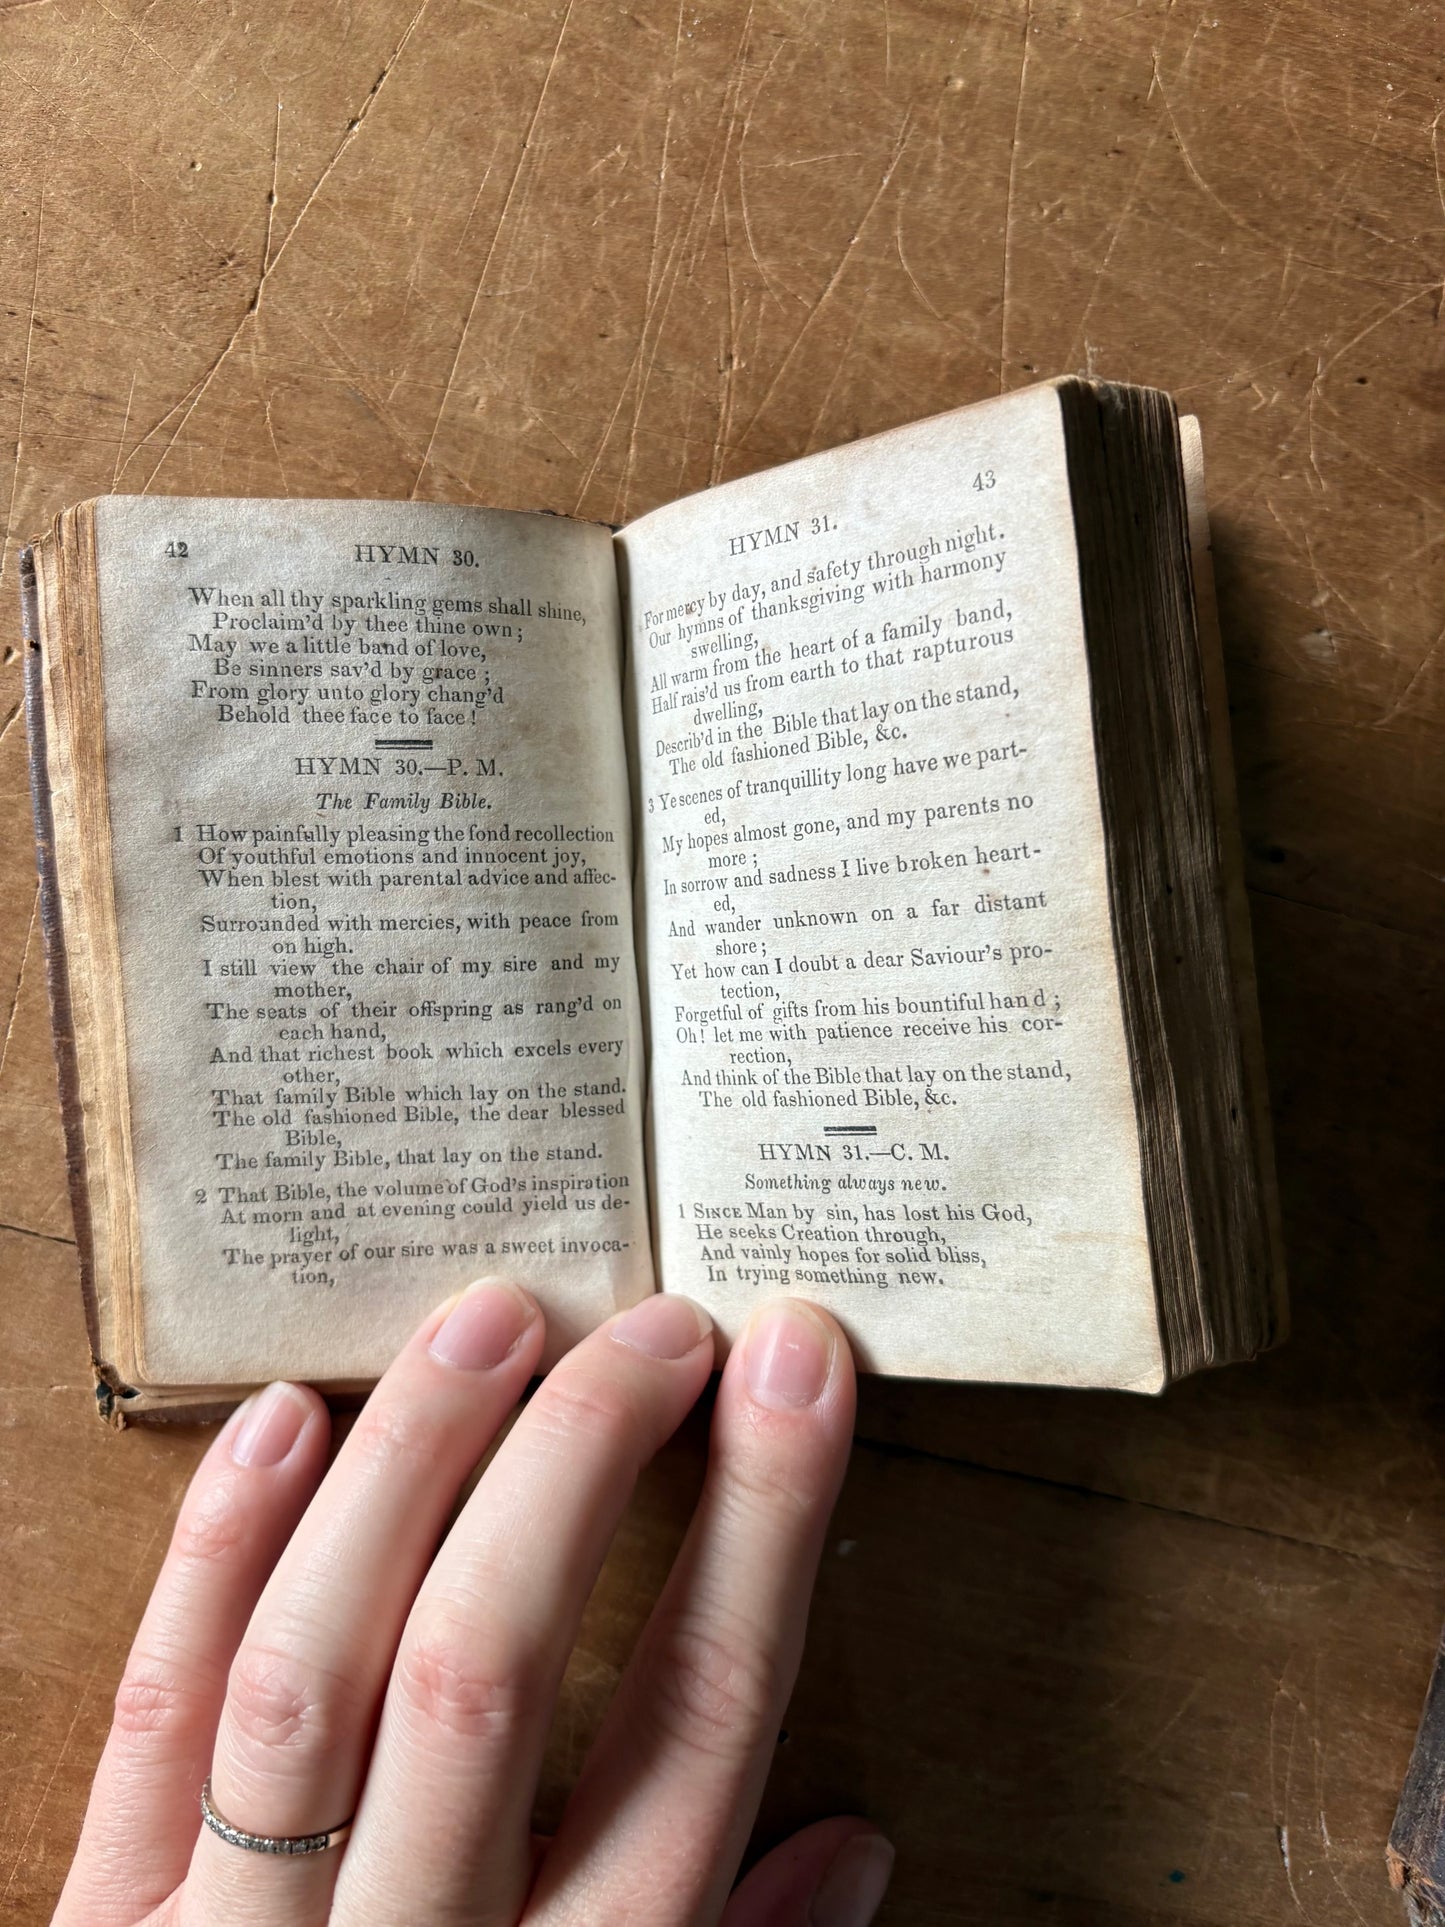 42
HYMN 30.
When all thy sparkling gems shall shine,
Proclaim'd by thee thine own;
May we a little band of love,
Be sinners sav'd by grace;
From glory unto glory chang'd
Behold thee face to face!
HYMN 30.—P. M.
The Family Bible.
1 How painfully pleasing the fond recollection
Of youthful emotions and innocent joy,
When blest with parental advice and affec-
tion,
Surrounded with mercies, with peace from
on high.
I still view the chair of my sire and my
mother,
The seats of their offspring as rang'd on
each hand,
And that richest book which excels every
other,
That family Bible which lay on the stand.
The old fashioned Bible, the dear blessed
Bible,
The family Bible, that lay on the stand.
2 That Bible, the volume of God's inspiration
At morn and at evening could yield us de-
light,
The prayer of our sire was a sweet invoca-
tion,
43
HYMN 31.
For mercy by day, and safety through night.
Our hymns of thanksgiving with harmony
swelling,
All warm from the heart of a family band,
Half rais'd us from earth to that rapturous
dwelling,
Describ'd in the Bible that lay on the stand,
The old fashioned Bible, &c.
3 Ye scenes of tranquillity long have we part-
ed,
My hopes almost gone, and my parents no
more;
In sorrow and sadness I live broken heart-
ed,
And wander unknown on a far distant
shore;
Yet how can I doubt a dear Saviour's pro-
tection,
Forgetful of gifts from his bountiful hand;
Oh! let me with patience receive his cor-
rection,
And think of the Bible that lay on the stand,
The old fashioned Bible, &c.
HYMN 31.—C. M.
Something always new.
1 SINCE Man by sin, has lost his God,
He seeks Creation through,
And vainly hopes for solid bliss,
In trying something new.